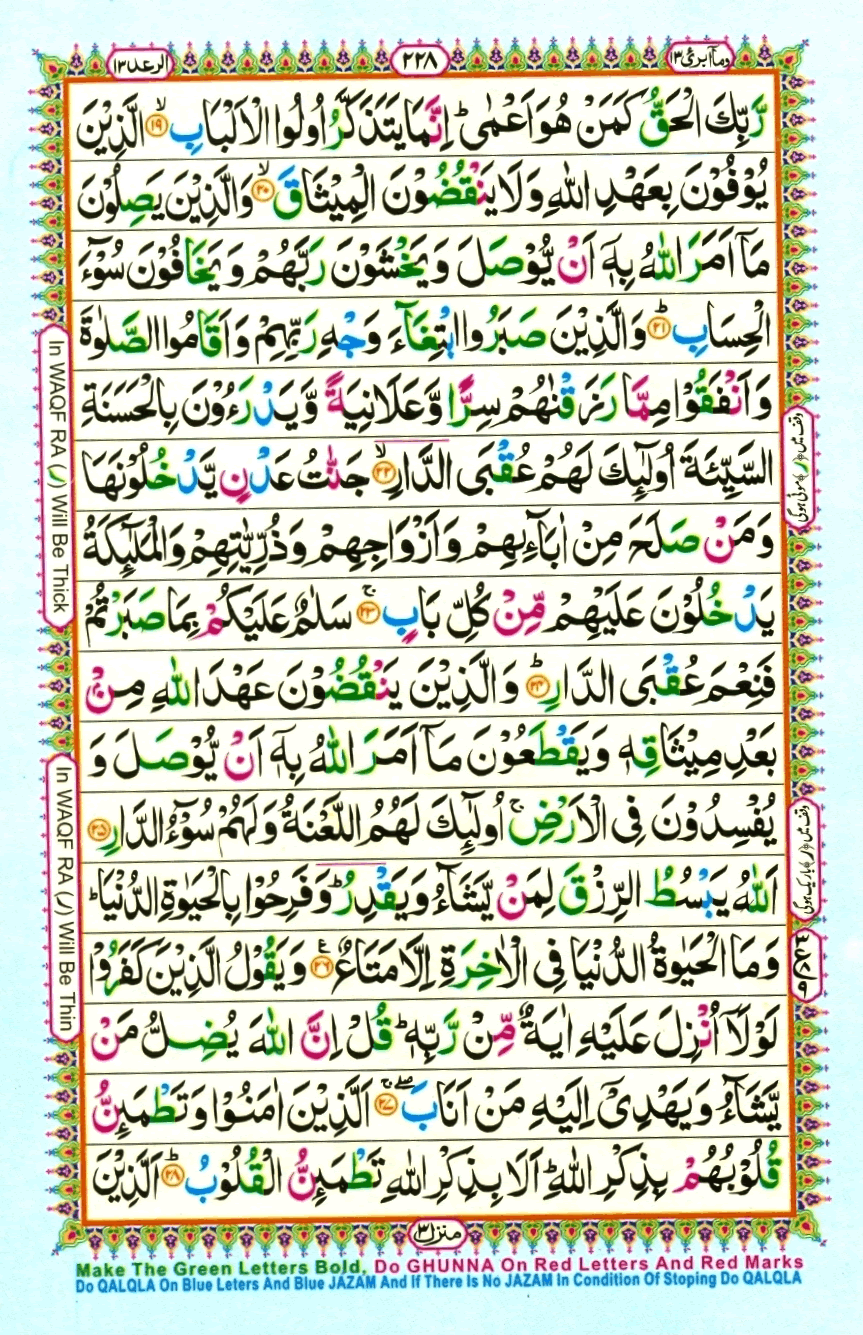 الرعد ١٣
٢٢٨
وما ابرئ ١٣
رَّبِّكَ الْحَقُّ كَمَنْ هُوَ اَعْمٰى ؕ اِنَّمَا يَتَذَكَّرُ اُولُوا الْاَلْبَابِ ۙ﴿۱۹﴾ الَّذِيْنَ
يُوْفُوْنَ بِعَهْدِ اللّٰهِ وَلَا يَنْقُضُوْنَ الْمِيْثَاقَ ۙ﴿۲۰﴾ وَالَّذِيْنَ يَصِلُوْنَ
مَاۤ اَمَرَ اللّٰهُ بِهٖۤ اَنْ يُّوْصَلَ وَيَخْشَوْنَ رَبَّهُمْ وَيَخَافُوْنَ سُوْٓءَ
الْحِسَابِ ؕ﴿۲۱﴾ وَالَّذِيْنَ صَبَرُوا ابْتِغَآءَ وَجْهِ رَبِّهِمْ وَاَقَامُوا الصَّلٰوةَ
وَاَنْفَقُوْا مِمَّا رَزَقْنٰهُمْ سِرًّا وَّعَلَانِيَةً وَّيَدْرَءُوْنَ بِالْحَسَنَةِ
السَّيِّئَةَ اُولٰٓئِكَ لَهُمْ عُقْبَى الدَّارِ ۙ﴿۲۲﴾ جَنّٰتُ عَدْنٍ يَّدْخُلُوْنَهَا
وَمَنْ صَلَحَ مِنْ اٰبَآئِهِمْ وَاَزْوَاجِهِمْ وَذُرِّيّٰتِهِمْ وَالْمَلٰٓئِكَةُ
يَدْخُلُوْنَ عَلَيْهِمْ مِّنْ كُلِّ بَابٍ ۚ﴿۲۳﴾ سَلٰمٌ عَلَيْكُمْ بِمَا صَبَرْتُمْ
فَنِعْمَ عُقْبَى الدَّارِ ؕ﴿۲۴﴾ وَالَّذِيْنَ يَنْقُضُوْنَ عَهْدَ اللّٰهِ مِنْۢ
بَعْدِ مِيْثَاقِهٖ وَيَقْطَعُوْنَ مَاۤ اَمَرَ اللّٰهُ بِهٖۤ اَنْ يُّوْصَلَ وَ
يُفْسِدُوْنَ فِى الْاَرْضِ ۙ اُولٰٓئِكَ لَهُمُ اللَّعْنَةُ وَلَهُمْ سُوْٓءُ الدَّارِ ﴿۲۵﴾
اَللّٰهُ يَبْسُطُ الرِّزْقَ لِمَنْ يَّشَآءُ وَيَقْدِرُ ؕ وَفَرِحُوْا بِالْحَيٰوةِ الدُّنْيَا ؕ
وَمَا الْحَيٰوةُ الدُّنْيَا فِى الْاٰخِرَةِ اِلَّا مَتَاعٌ ﴿۲۶﴾ وَيَقُوْلُ الَّذِيْنَ كَفَرُوْا
لَوْلَاۤ اُنْزِلَ عَلَيْهِ اٰيَةٌ مِّنْ رَّبِّهٖ ؕ قُلْ اِنَّ اللّٰهَ يُضِلُّ مَنْ
يَّشَآءُ وَيَهْدِيْۤ اِلَيْهِ مَنْ اَنَابَ ۖۚ﴿۲۷﴾ اَلَّذِيْنَ اٰمَنُوْا وَتَطْمَئِنُّ
قُلُوْبُهُمْ بِذِكْرِ اللّٰهِ ؕ اَلَا بِذِكْرِ اللّٰهِ تَطْمَئِنُّ الْقُلُوْبُ ؕ﴿۲۸﴾ اَلَّذِيْنَ
منزل ٣
In WAQF RA (ر) Will Be Thick
In WAQF RA (ر) Will Be Thin
وقف میں (ر) موٹی ہوگی
وقف میں (ر) باریک ہوگی
Make The Green Letters Bold, Do GHUNNA On Red Letters And Red Marks
Do QALQLA On Blue Leters And Blue JAZAM And If There Is No JAZAM In Condition Of Stoping Do QALQLA